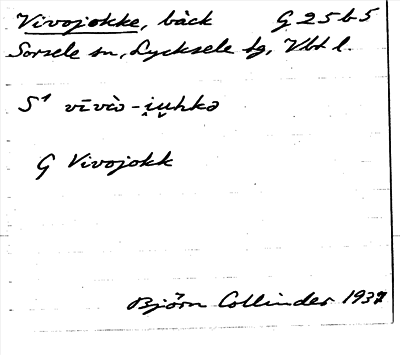 Vivojokke, bäck G 25 b 5
Sorsele sn, Lycksele tg, Vbt l.
S¹ vīvò-i̯u̯hkə
G Vivojokk
Björn Collinder 1937